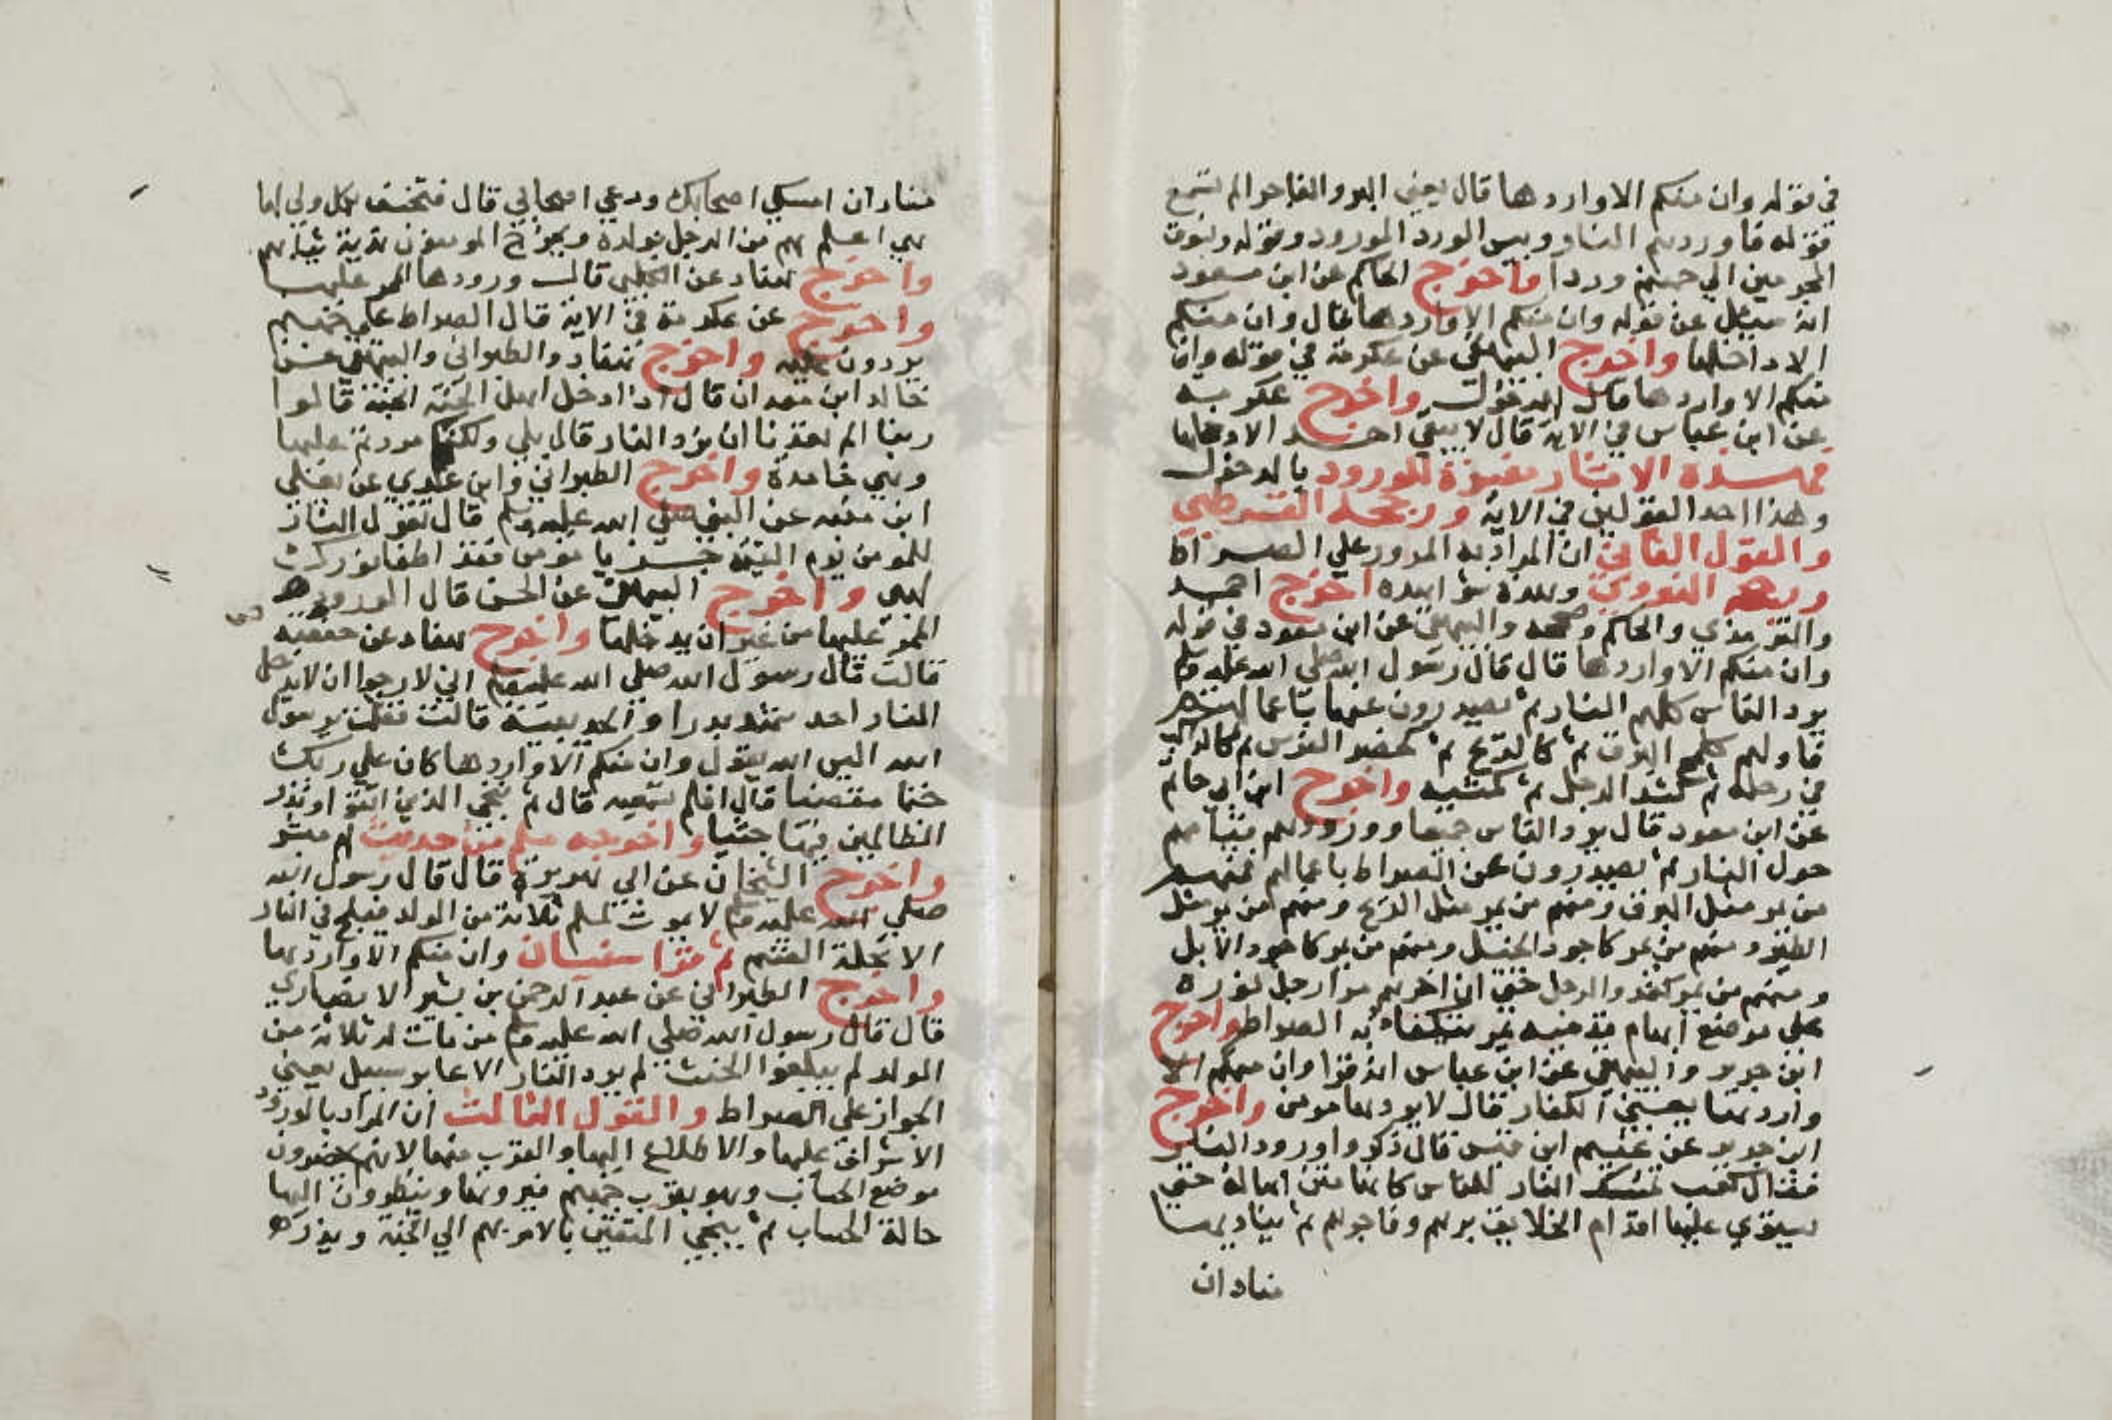 في قوله وان منكم الا واردها قال يعني البر والفاجر الم تسمع
قوله فاوردهم النار وبيس الورد المورود وقوله ونسوق
المجرمين الي جهنم وردا واخرج الحاكم عن ابن مسعود
انه سيل عن قوله وان منكم الا واردها قال وان منكم
الا داخلها واخرج البيهقي عن عكرمة في قوله وان
منكم الا واردها قال الدخول واخرج عكرمه
عن ابن عباس في الاية قال لا يبقي احد الا دخلها
فهذه الاثار مفسرة للورود بالدخول
وهذا احد القولين في الاية ورجحه القرطبي
والقول الثاني ان المراد به المرور علي الصراط
ورجحه النووي وهذه شواهده اخرج احمد
والترمذي والحاكم وصححه والبيهقي عن ابن مسعود في قوله
وان منكم الا واردها قال قال رسول الله صلي الله عليه وسلم
يرد الناس كلهم النار ثم يصدرون عنها باعمالهم
فاولهم كلمح البرق ثم كالريح ثم كحضر الفرس ثم كالراكب
في رحله ثم كشد الرجل ثم كمشيه واخرج ابن ابي حاتم
عن ابن مسعود قال يرد الناس جميعا وورودهم قيامهم
حول النار ثم يصدرون عن الصراط باعمالهم فمنهم
من يمر مثل البرق ومنهم من يمر مثل الريح ومنهم من يمر مثل
الطير ومنهم من يمر كاجود الخيل ومنهم من يمر كاجود الابل
ومنهم من يمر كعدو الرجل حتي ان اخرهم مرا رجل نوره
علي موضع ابهام قدميه يمر يتكفاء به الصراط واخرج
ابن جرير والبيهقي عن ابن عباس انه قرا وان منهم الا
واردها يعني الكفار قال لا يردها مومن واخرج
ابن جرير عن غنيم ابن قيس قال ذكروا ورود النار
فقال كعب تمسك النار للناس كانها متن اهالة حتي
يستوي عليها اقدام الخلايق برهم وفاجرهم ثم يناديها
مناد ان
مناد ان امسكي اصحابك ودعي اصحابي قال فتخسف بكل ولي لها
هي اعلم بهم من الرجل بولده ويخرج المومنون ندية ثيابهم
واخرج هناد عن الكلبي قال ورودها المر عليها
واخرج عن عكرمة في الاية قال الصراط علي جهنم
يردون عليه واخرج هناد والطبراني والبيهقي عن
خالد ابن معدان قال اذا دخل اهل الجنة الجنة قالوا
ربنا الم تعدنا ان نرد النار قال بلي ولكنكم مررتم عليها
وهي خامدة واخرج الطبراني وابن عدي عن يعلي
ابن منيه عن النبي صلي الله عليه وسلم قال تقول النار
للمومن يوم القيمة جز يا مومن فقد اطفا نورك
لهبي واخرج البيهقي عن الحسن قال الورود
الممر عليها من غير ان يدخلها واخرج هناد عن حفصة
قالت قال رسول الله صلي الله عليه وسلم اني لارجو ان لا يدخل
النار احد شهد بدرا والحديبية قالت فقلت يرسول
الله اليس الله يقول وان منكم الا واردها كان علي ربك
حتما مقضيا قال افلم تسمعيه قال ثم ننجي الذين اتقوا ونذر
الظالمين فيها جثيا واخرجه مسلم من حديث ام مبشر
واخرج الشيخان عن ابي هريرة قال قال رسول الله
صلي الله عليه وسلم لا يموت لمسلم ثلاثة من الولد فيلج في النار
الا تحلة القسم ثم قرا سفيان وان منكم الا واردها
واخرج الطبراني عن عبد الرحمن بن بشير الانصاري
قال قال رسول الله صلي الله عليه وسلم من مات له ثلاثة من
الولد لم يبلغوا الحنث لم يرد النار الا عابر سبيل يعني
الجواز علي الصراط والقول الثالث ان المراد بالورود
الاشراف عليها والاطلاع اليها والقرب منها لانهم يحضرون
موضع الحساب وهو بقرب جهنم فيرونها وينظرون اليها
حالة الحساب ثم ينجي المتقين بالامر بهم الي الجنة ويذرهم